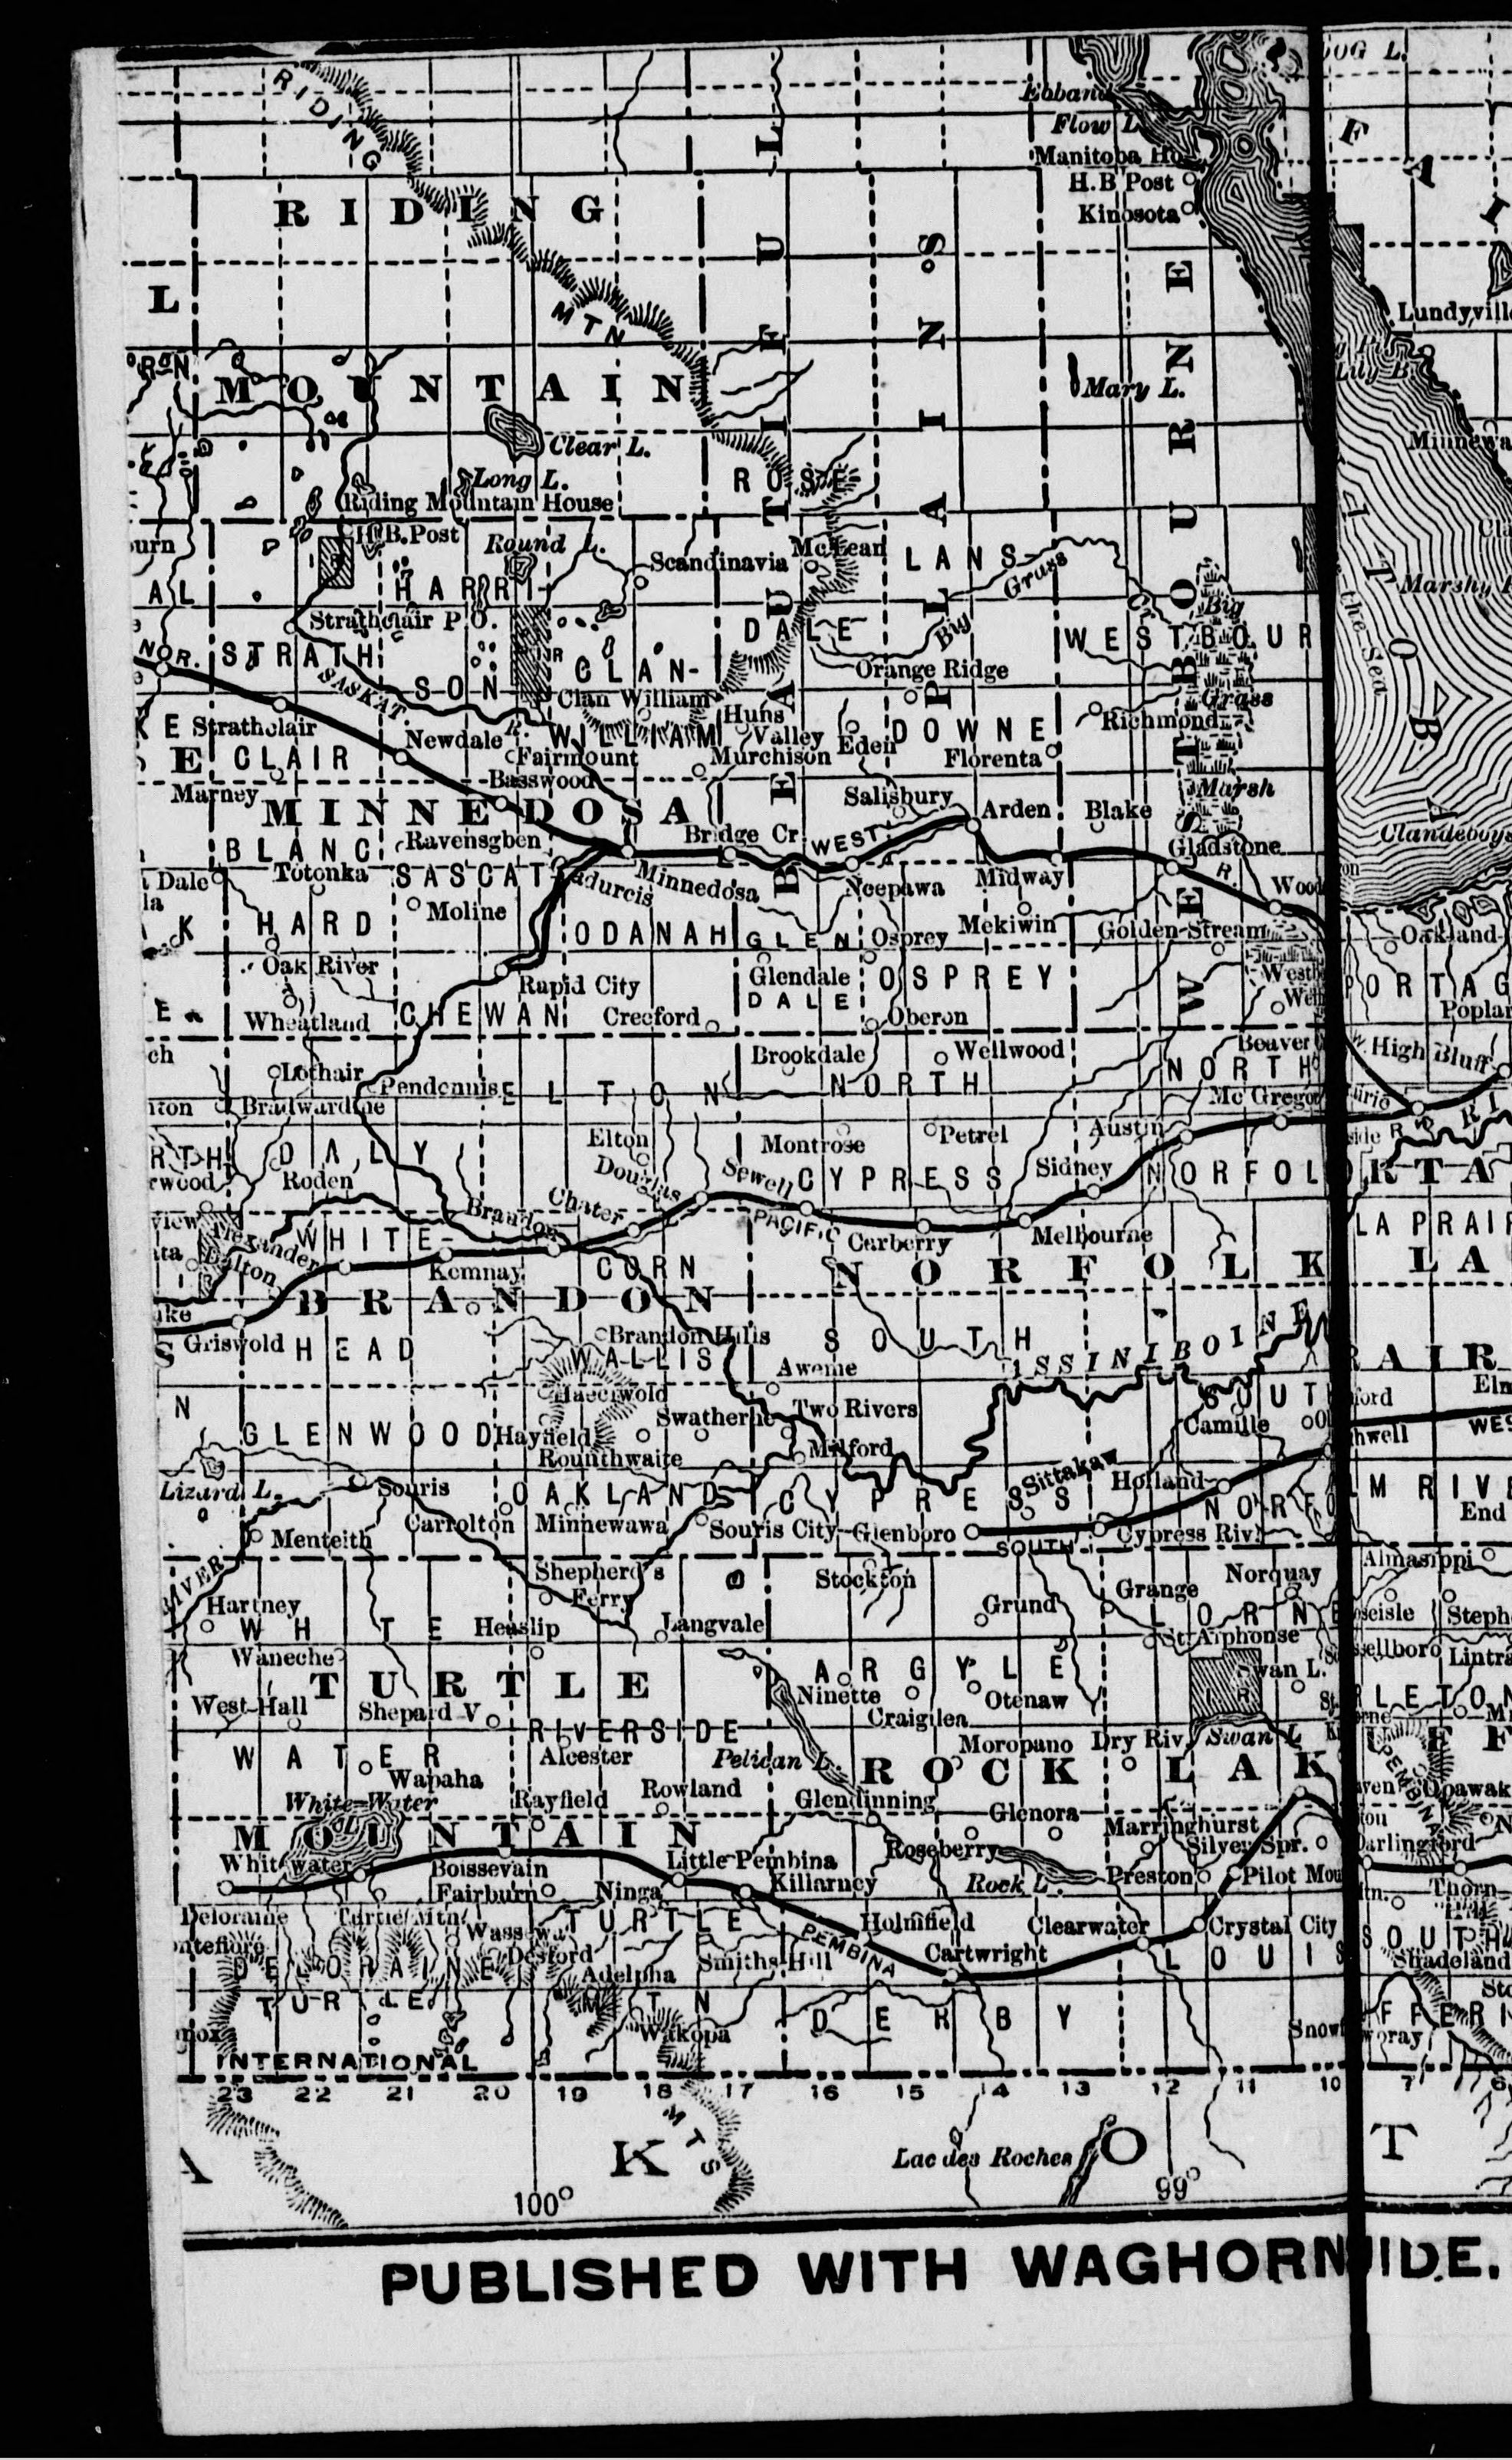 RIDING
OG L.
Ebband
Flow L
FAI
Manitoba Ho
H.B Post
Kinosota
RIDING
L
MTN
Lundyville
MOUNTAIN
Mary L.
BEAUTIFUL
PLAINS
WESTBOURNE
Clear L.
Minnewa
Long L.
Riding Mountain House
ROSE
H.B. Post
Round L.
Scandinavia
McLean
LANS-
Big Grass
HARRI-
AL
Marshy
Strathclair P.O.
DALE
Big
WESTBOUR
NOR.
STRATH
SASKAT.
SON
I R
CLAN-
Orange Ridge
Clan William
Big
Grass
Marsh
Huns
Valley
Richmond
KE
Strathclair
Newdale
R.
WILLIAM
Eden
DOWNE
E
CLAIR
Fairmount
Murchison
Florenta
Basswood
Marney
MINNEDOSA
Salisbury
Arden
Blake
Clandeboys
Ravensgben
Bridge Cr.
WEST
Gladstone
BLANC
Totonka
SASCAT
Minnedosa
Neepawa
Midway
R.
Wood
Dale
Moline
HARD
ODANAH
GLEN
Osprey
Mekiwin
Golden Stream
Oakland
K
Oak River
Glendale
OSPREY
Westb
PORTAG
Rapid City
DALE
Poplar
E
Wheatland
CHEWAN
Creeford
Oberon
Brookdale
Wellwood
Beaver
High Bluff
Lothair
Pendennis
ELTON
NORTH
NORTH
Mc Gregor
Bradwardine
Elton
Montrose
Petrel
Austin
RTH
DALY
Douglas
Sewell
CYPRESS
Sidney
NORFOL
RTA
rwood
Roden
Chater
Brandon
PACIFIC
Carberry
Melbourne
LA PRAIR
Alexander
WHITE-
Dalton
Kemnay
CORN
NORFOLK
LA
BRANDON
Griswold
HEAD
Brandon Hills
WALLIS
SOUTH
ASSINIBOINE
RAIR
Aweme
N
Two Rivers
SOUT
Elm
GLENWOOD
Hayfield
Camille
WES
Rounthwaite
Milford
Sittakaw
Holland
Lizard L.
Souris
OAKLAND
CYPRESS
NORFO
LM RIVE
Carrolton
Minnewawa
Souris City
Glenboro
Cypress Riv.
End
Menteith
SOUTH
RIVER
Shepherd's
Ferry
Stockton
Norquay
Almasippi
Hartney
Grund
Grange
LORNE
Steph
WHITE
Heaslip
Langvale
St. Alphonse
Waneche
ARGYLE
Swan L.
TURTLE
Ninette
Otenaw
I R
West Hall
Shepard V.
Craigilea
RIVERSIDE
Moropano
Dry Riv.
Swan L
WATER
Alcester
Pelican L.
ROCK LAK
Wapaha
White Water
L.
Rayfield
Rowland
Glendinning
Glenora
PEMBINA
MOUNTAIN
Marringhurst
Silver Spr.
Darlingford
Whitewater
Boissevain
Little Pembina
Roseberry
Fairburn
Ninga
Killarney
Rock L.
Preston
Pilot Mou
Thorn-
Hill
Deloraine
Turtle Mtn.
Wassewa
TURTLE
Holmfield
Clearwater
Crystal City
SOUTH
Desford
PEMBINA
Cartwright
LOUIS
Shadeland
DELORAINE
Adelpha
Smiths Hill
TURTLE
MTN
DERBY
FFERI
Wakopa
Snow
INTERNATIONAL
23 22 21 20 19 18 17 16 15 14 13 12 11 10 7 6
MTS
A
K
Lac des Roches
O
T
100°
99°
PUBLISHED WITH WAGHORN
IDE.